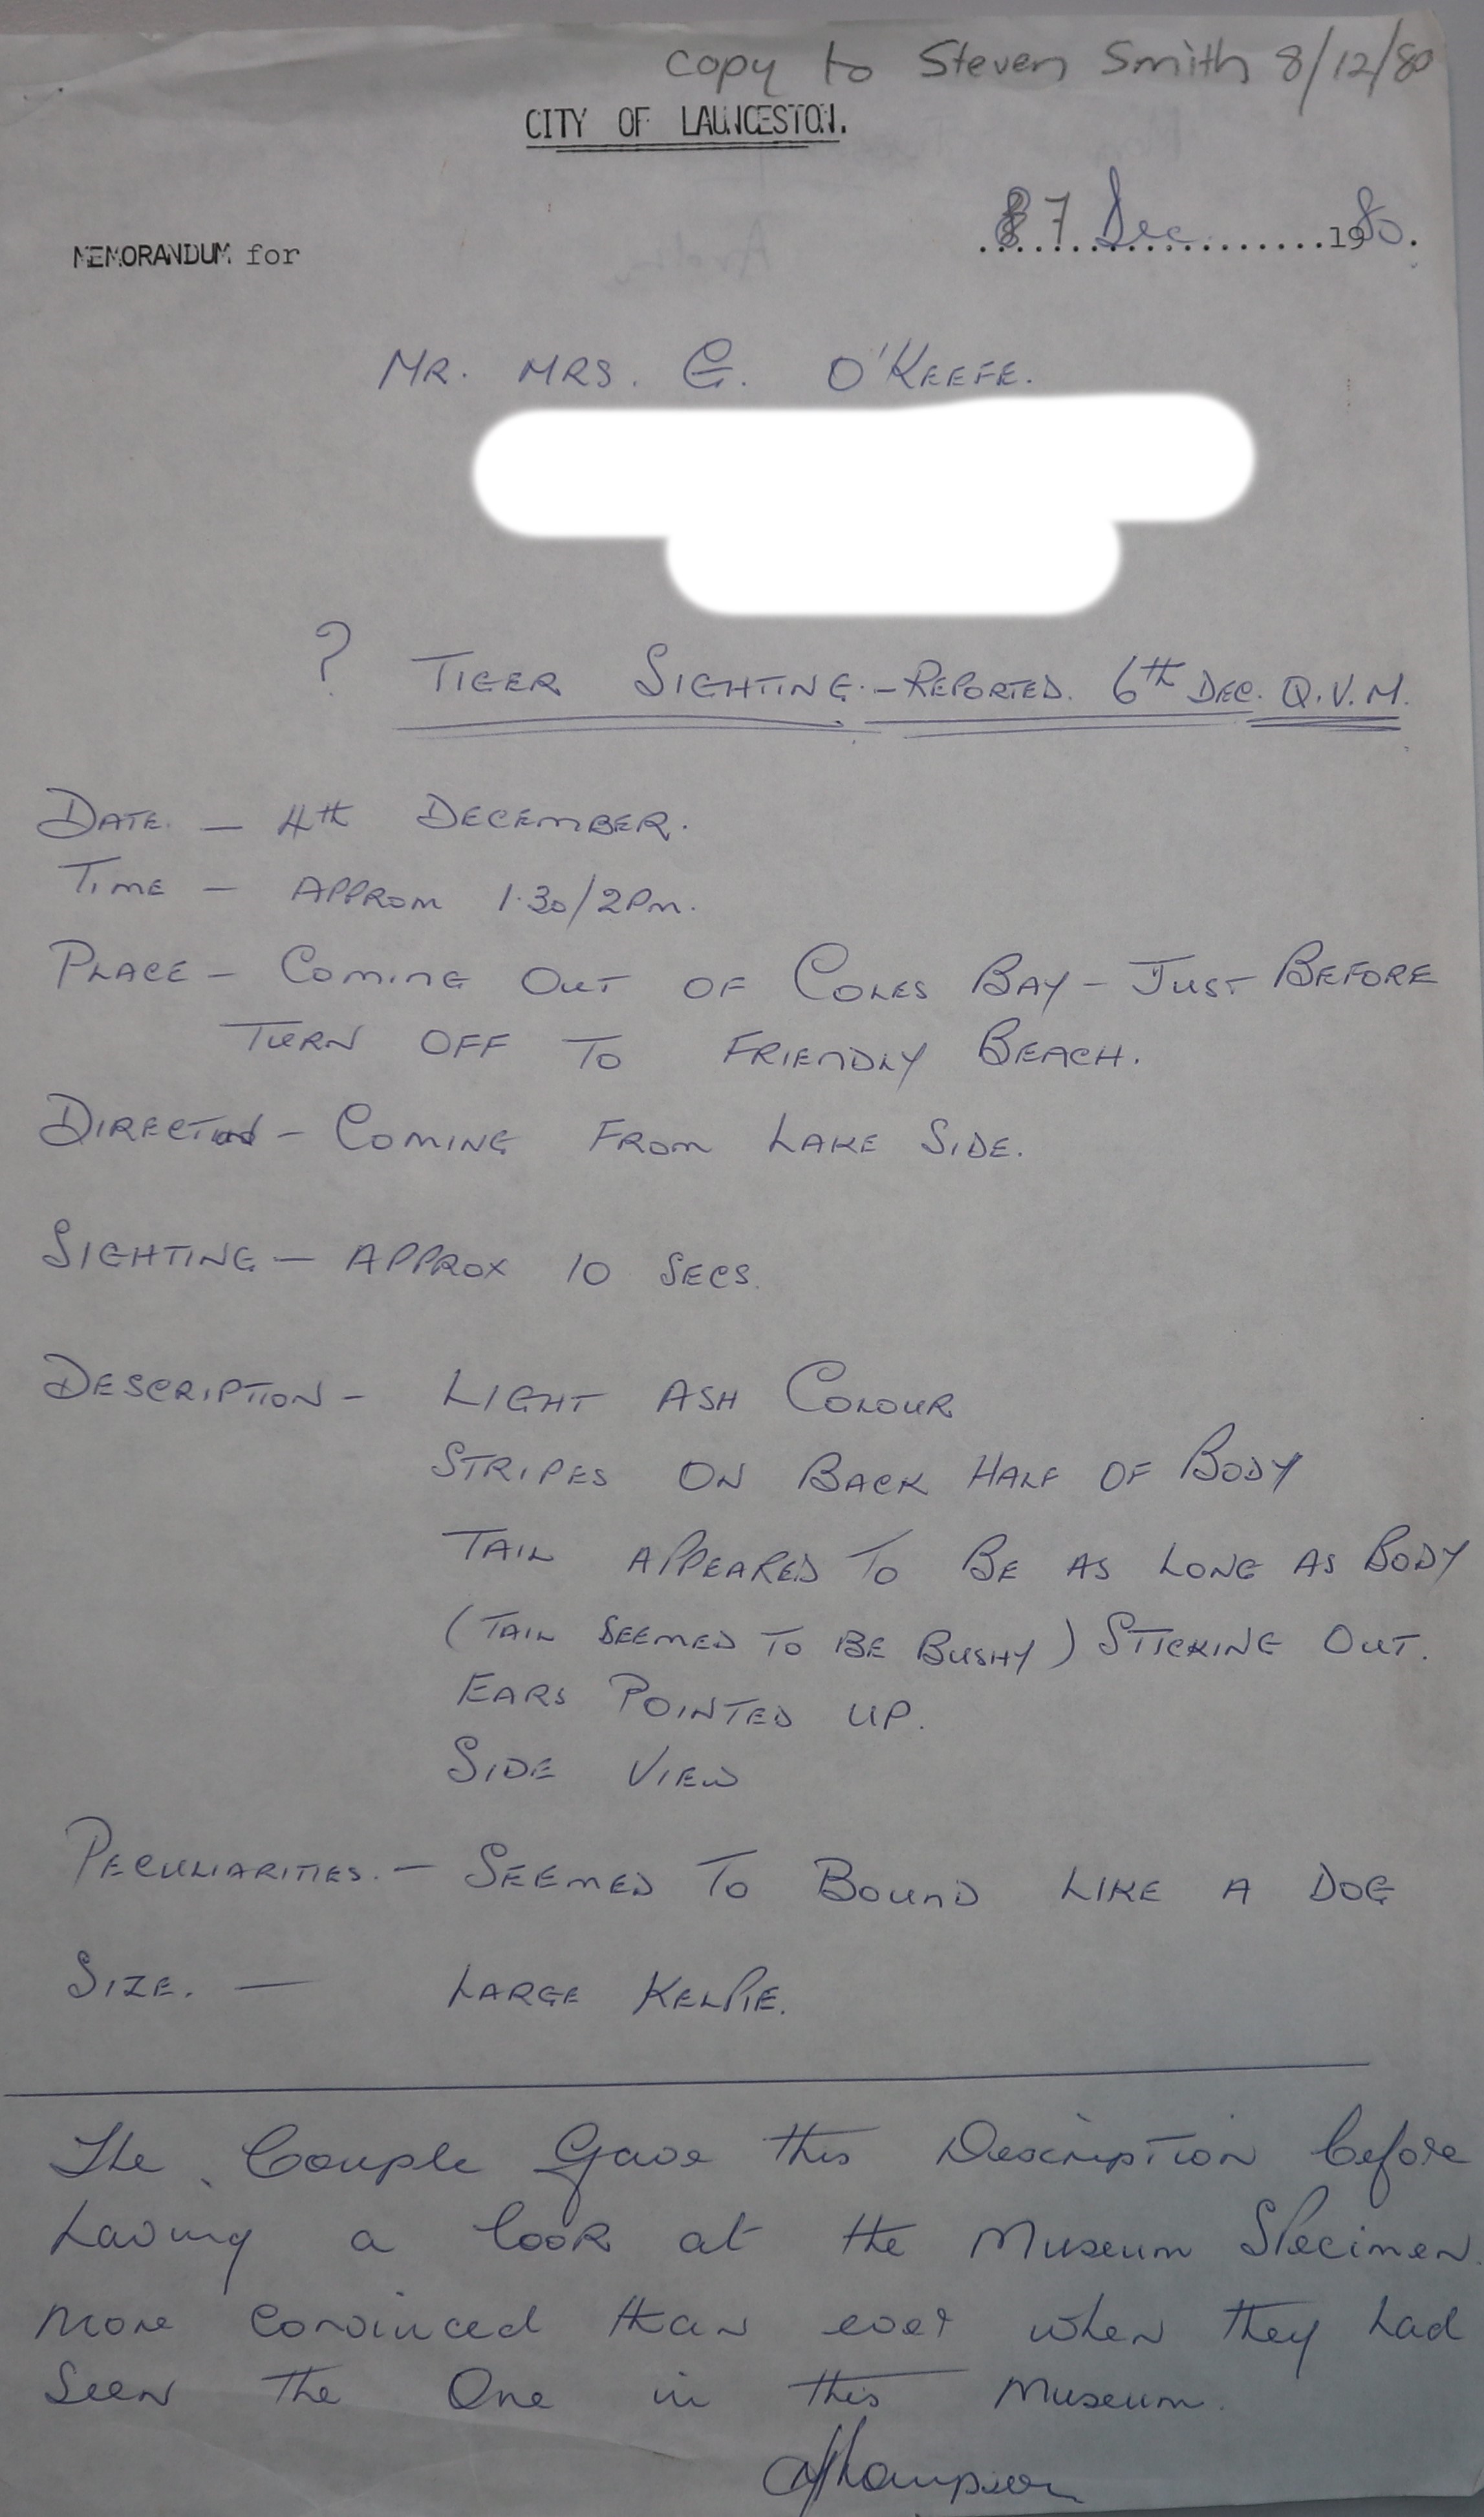 copy to Steven Smith 8/12/80
CITY OF LAUNCESTON.
7 Dec 1980.
MEMORANDUM for
MR. MRS. G. O'KEEFE.
? TIGER SIGHTING.-REPORTED. 6th DEC. Q.V.M.
DATE. - 4th DECEMBER.
TIME - APPROM 1.30/2PM.
PLACE - COMING OUT OF COLES BAY - JUST BEFORE
TURN OFF TO FRIENDLY BEACH.
DIRECTION - COMING FROM LAKE SIDE.
SIGHTING - APPROX 10 SECS.
DESCRIPTION - LIGHT ASH COLOUR
STRIPES ON BACK HALF OF BODY
TAIL APPEARED TO BE AS LONG AS BODY
(TAIL SEEMED TO BE BUSHY) STICKING OUT.
EARS POINTED UP.
SIDE VIEW
PECULIARITIES. - SEEMED TO BOUND LIKE A DOG
SIZE. - LARGE KELPIE.
The Couple Gave this Description before
having a look at the Museum Specimen.
More convinced than ever when they had
seen the One in this Museum.
Thompson